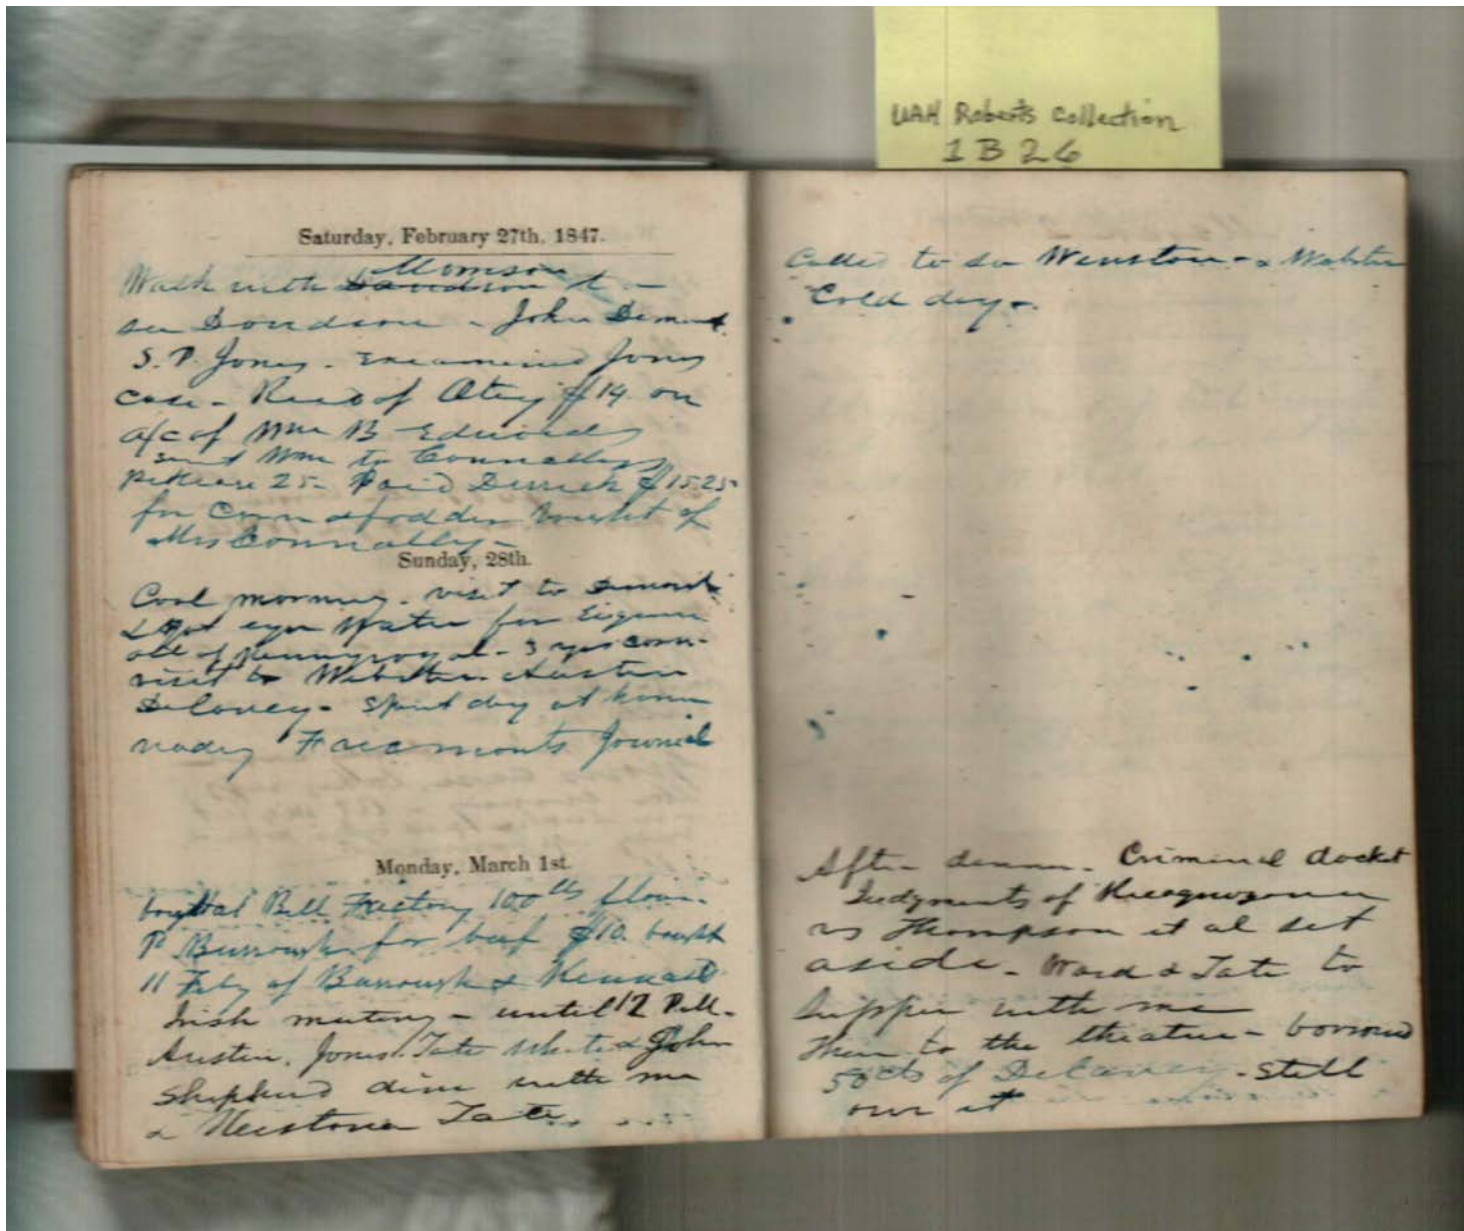 UAH Roberts Collection
1 B 26
Saturday, February 27th, 1847.
Walk with to
see Davidson - John
S. P. Jones. Examined Jones
case - of Otey $14. on
a/c of B Edwards
sent Wm to Connallys
25 - Paid Derrick $15.25
for Corn & fodder bought of
Mrs Connally -
Sunday, 28th.
Cool morning. visit to
& Got eye Water for
oil of Pennyroyal - 3
visit to Webster. Austin
Delaney - Spent day at home
Journal
Monday, March 1st.
at Bell Factory 100 lbs flour.
Pd Burrough for beef $10. bought
11 Feby of Burrough &
Irish meeting - until 12 P.M.
Austin, Jones. Tate White & John
Shepherd dine with me
& Tate
Called to see Winston - & Webster
Cold day -
After dinner. Criminal docket
Judgments of
vs Thompson et al set
aside - Ward & Tate to
Supper with me
Then to the theatre - borrowed
50 cts of Delaney - still
owe it